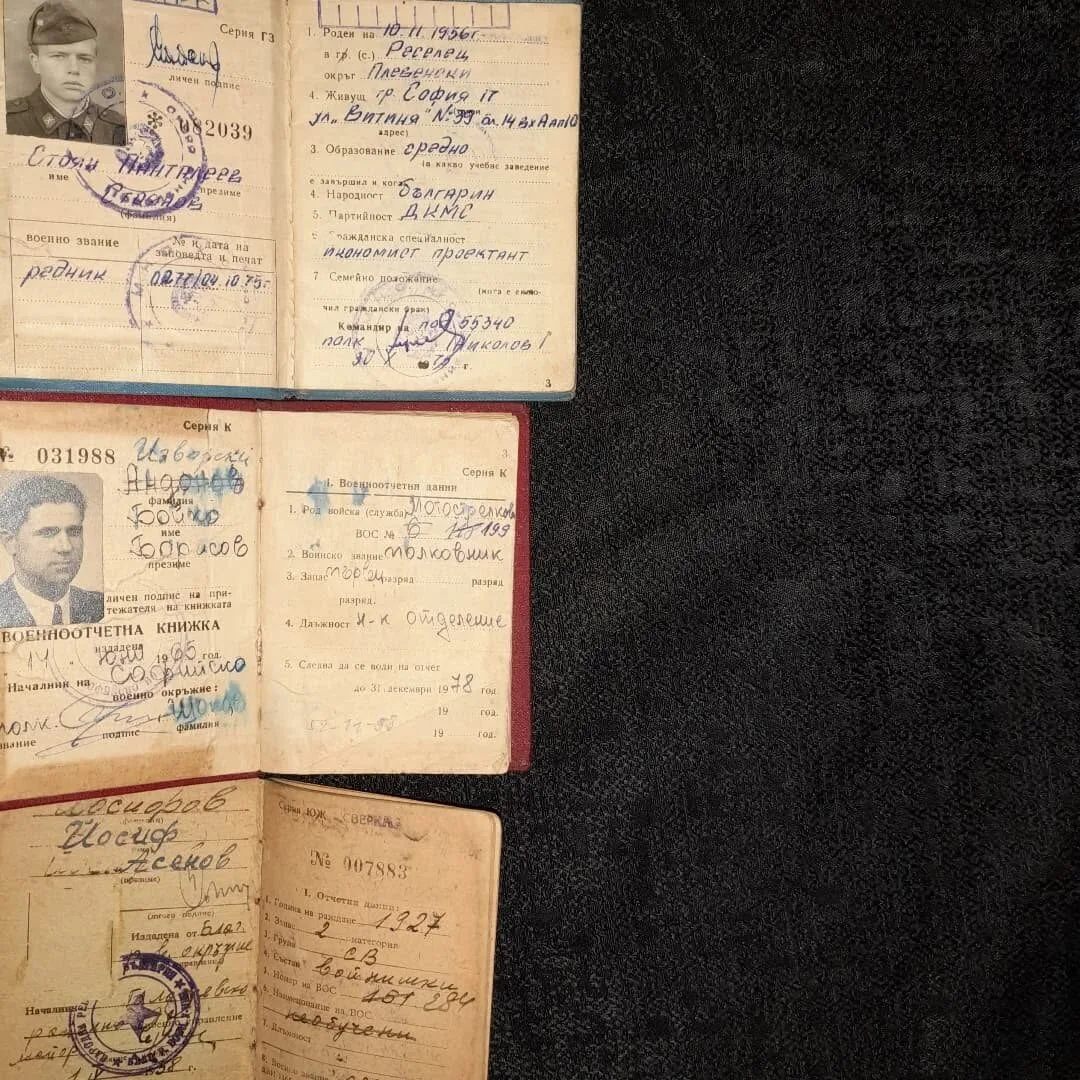 Серия ГЗ
личен подпис
№ 082039
Стоян Панталеев
име презиме
(фамилия)
военно звание
№ и дата на заповедта и печат
редник
0277/04.10.75г.
1. Роден на 10.11.1956г.
в гр. (с.) Реселец
окръг Плевенски
4. Живущ гр. София 17
ул. "Витиня" № 39 бл. 14 вх А ап 10
адрес)
3. Образование средно
(в какво учебно заведение
е завършил и кога)
4. Народност българин
5. Партийност ДКМС
Гражданска специалност
икономист проектант
7 Семейно положение
(кога е склю-
чил граждански брак)
Командир на под 55340
полк Николов Г
г.
3
Серия К
№ 031988 Изворски
Андонов
фамилия
Бойко
име
Борисов
презиме
личен подпис на при-
тежателя на книжката
ВОЕННООТЧЕТНА КНИЖКА
издадена
14 юни 1965 год.
Началник на Софийско
военно окръжие:
полк.
звание подпис фамилия
3
Серия К
1. Военноотчетни данни
1. Род войска (служба) Мотострелкови
ВОС № 199
2. Воинско звание полковник
3. Запас първи разряд разряд
разряд.
4. Длъжност н-к отделение
5. Следва да се води на отчет
до 31. декември 1978 год.
19 год.
19 год.
Йосиф
(име)
Асенов
(презиме)
(личен подпис)
Издадена от Благ.
в. окръжие
Началник
майор
Серия ЮЖ СВЕРКА
№ 007883
1. Отчетни данни:
1. Година на раждане 1927
2. Запас 2 категория
3. Група СВ
4. Състав войнишки
5. Номер на ВОС 151
6. Наименование на ВОС
необучени
7. Длъжност